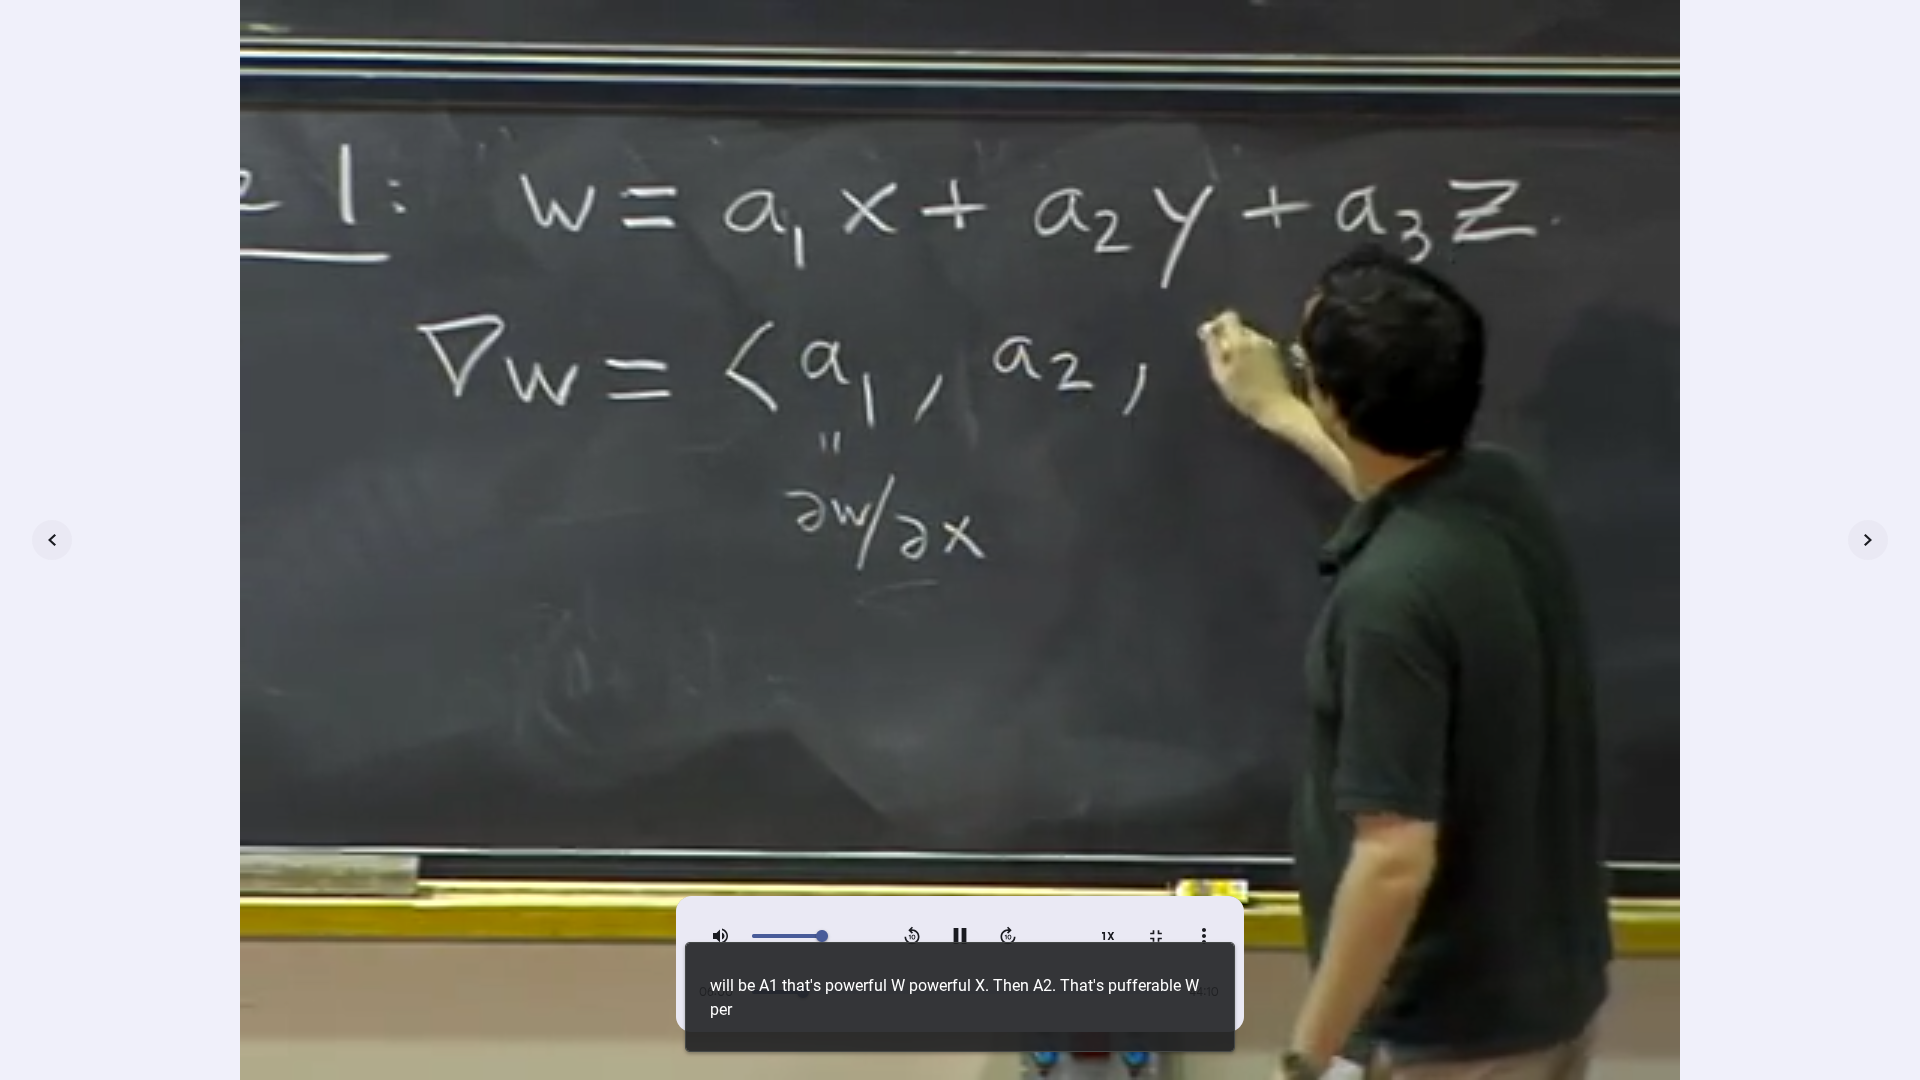 e 1: w = a₁ x + a₂ y + a₃ z.
∇w = ⟨ a₁ , a₂ ,
"
∂w/∂x
1X
will be A1 that's powerful W powerful X. Then A2. That's pufferable W
per